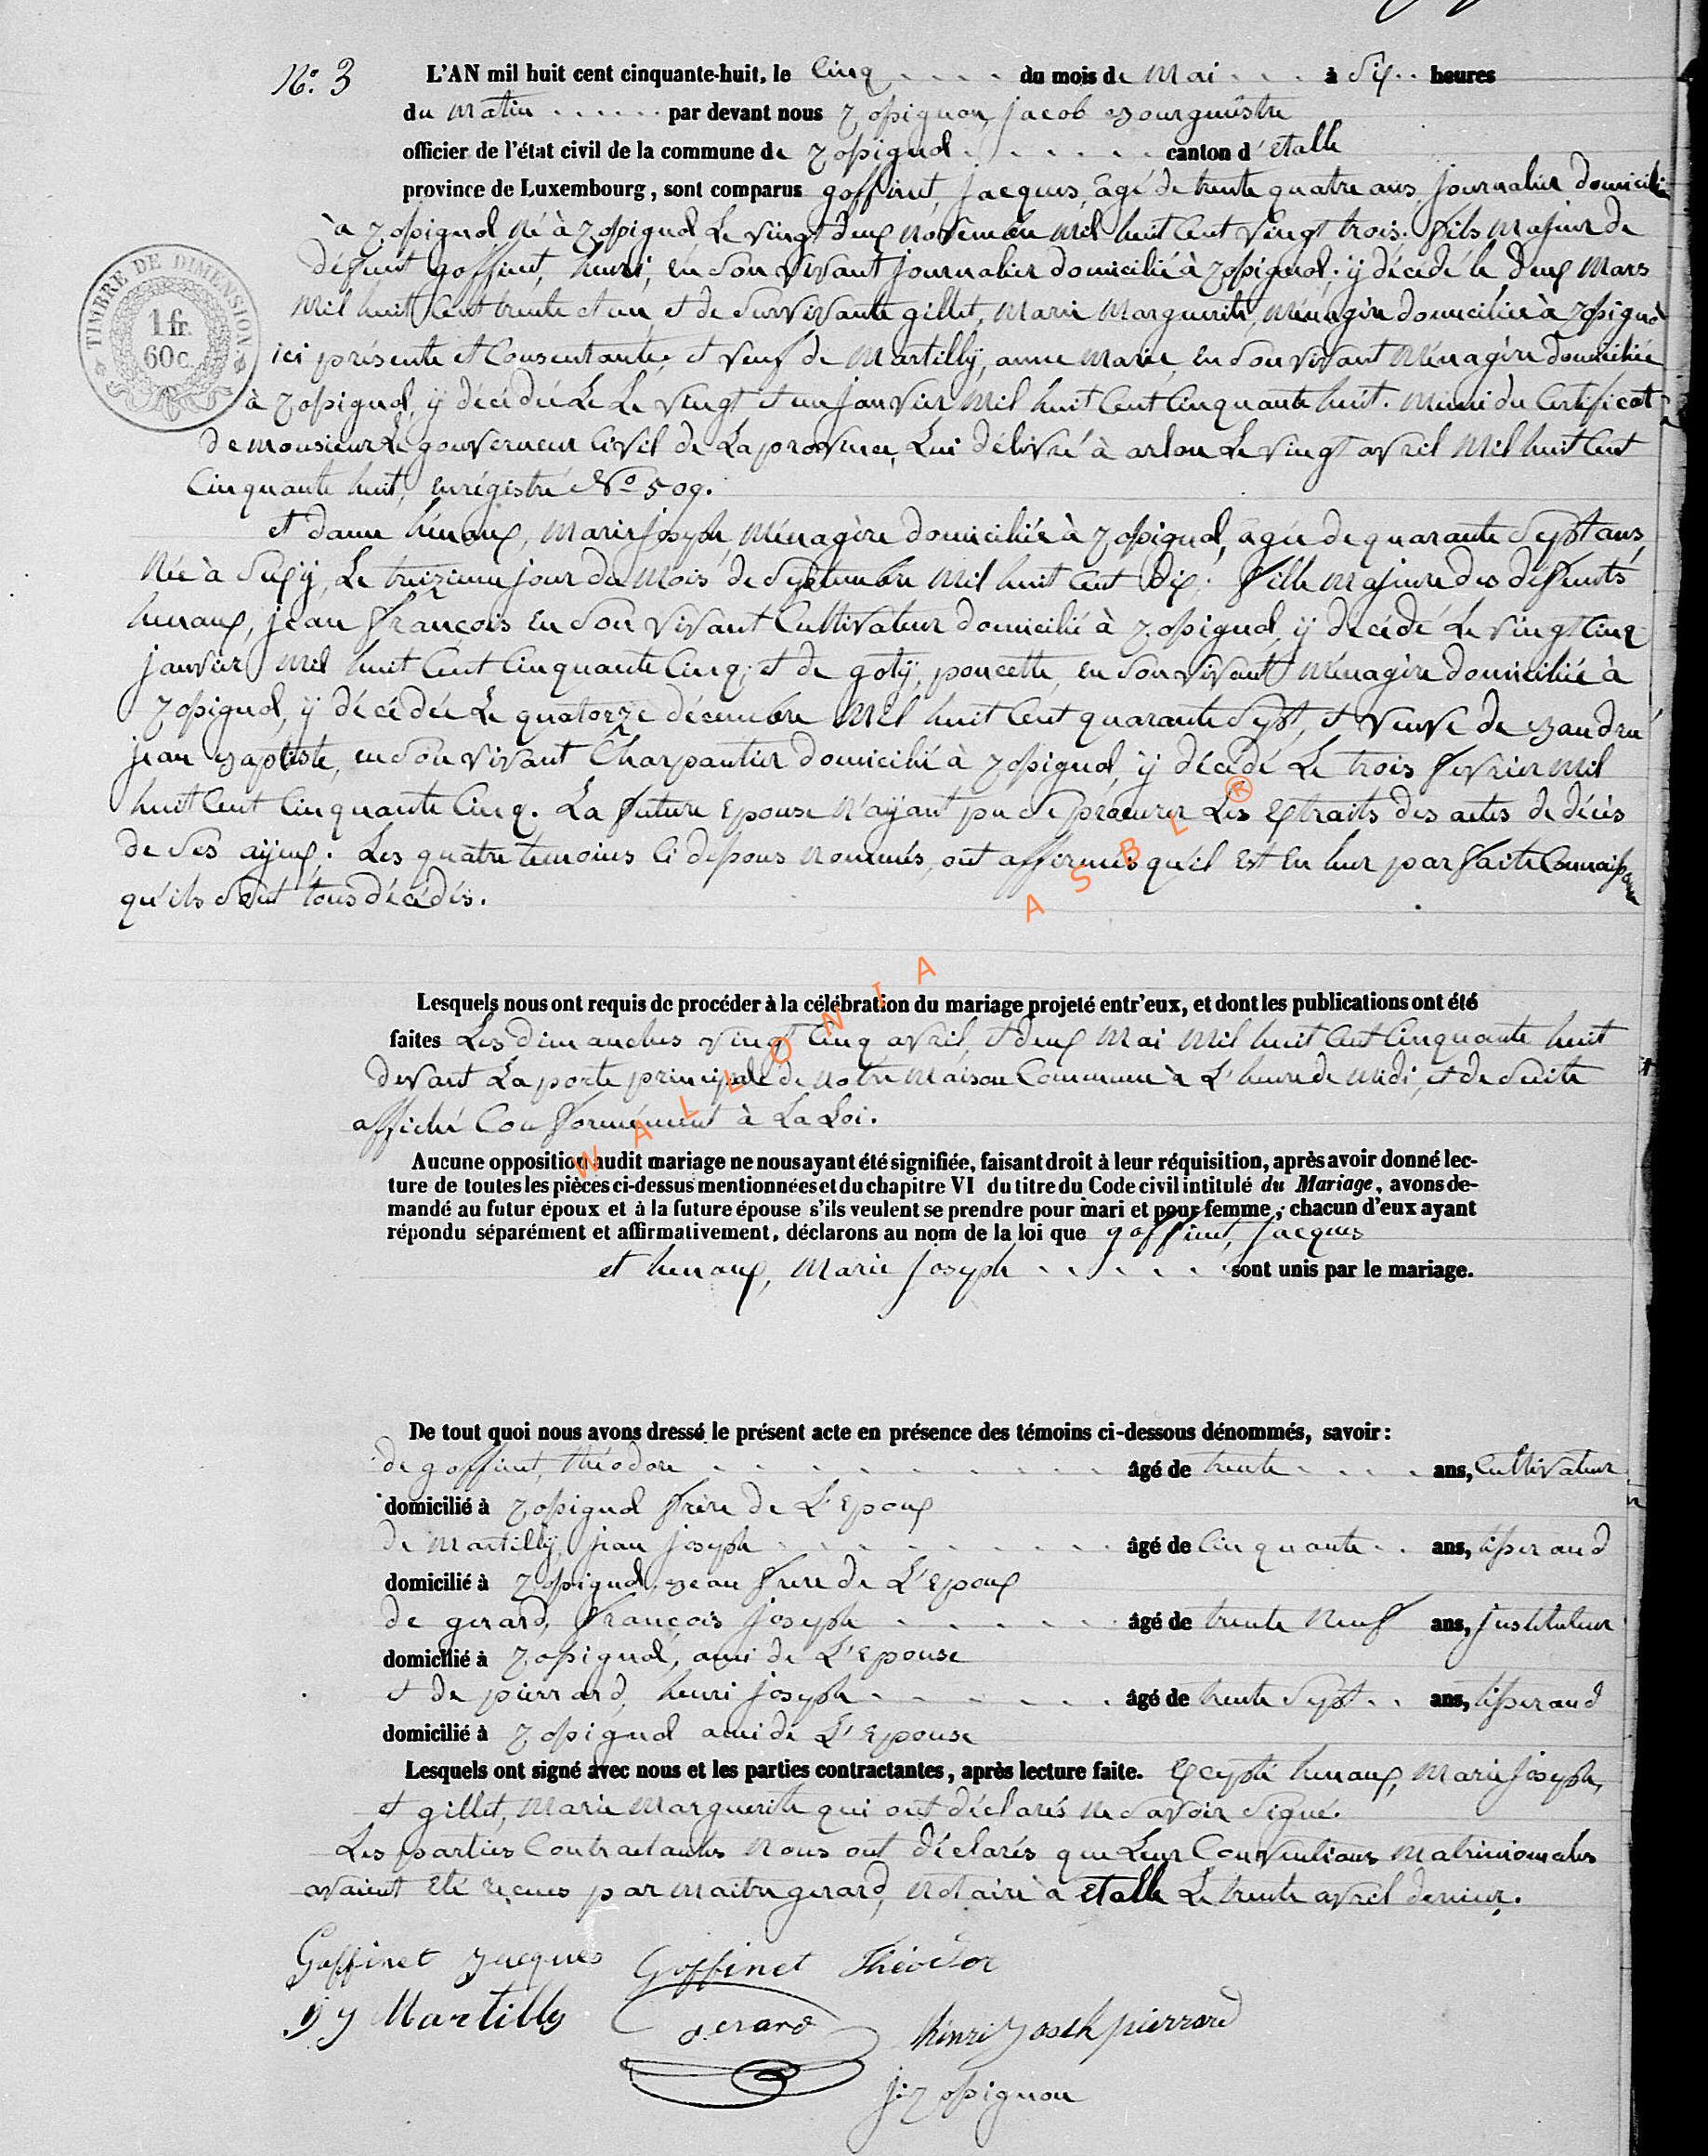 N.° 3
L'AN mil huit cent cinquante-huit, le Cinq . . . . du mois de Mai . . . à Six . . heures
du Matin . . . . . . par devant nous Rossignon, jacob Bourgmestre
officier de l'état civil de la commune de Rossignol . . . . . . canton d'Etalle
province de Luxembourg, sont comparus goffinet, jacques, âgé de trente quatre ans, journalier domicilié
à Rossignol Né à Rossignol, Le vingt deux Novembre Mil huit Cent vingt trois. fils Majeur de
défunt goffinet, henri, en Son vivant journalier domicilié à Rossignol, ÿ décédé le deux Mars
Mil huit Cent trente et un, et de Survivante gillet, Marie Marguerite, Ménagère domiciliée à Rossignol
ici présente et Consentante, et veuf de Martillÿ, anne Marie, en Son vivant Ménagère domiciliée
à Rossignol, ÿ décédée Le Le vingt et un janvier Mil huit Cent Cinquante huit. Muni du Certificat
de Monsieur Le gouverneur Civil de La province, Lui délivré à arlon Le vingt avril Mil huit Cent
Cinquante huit, enrégistré N° 509.
et dame henoux, Marie joseph, Ménagère domiciliée à Rossignol, âgée de quarante Sept ans,
Née à Suxÿ, Le treizieme jour du Mois de Septembre Mil huit Cent Dix. fille Majeure des défunts
henoux, jean françois en Son vivant Cultivateur domicilié à Rossignol, ÿ décédé Le vingt Cinq
janvier Mil huit Cent Cinquante Cinq; et de gotÿ, poncette, en Son vivant Ménagère domiciliée à
Rossignol, ÿ décédée Le quatorze décembre Mil huit Cent quarante Sept, et veuve de Baudru
jean Baptiste, en Son vivant Charpentier domicilié à Rossignol, ÿ décédé Le trois fevrier Mil
huit Cent Cinquante Cinq. La future Epouse N'aÿant pu Se procurer Les Extraits des actes de décès
de Ses aÿeux. Les quatre temoins Ci dessous nommés, ont affirmés qu'il Est En leur parfaite Connaissance
qu'ils Sont tous décédés.
Lesquels nous ont requis de procéder à la célébration du mariage projeté entr'eux, et dont les publications ont été
faites Les dimanches vingt Cinq avril, et deux Mai Mil huit Cent Cinquante huit
devant La porte principale de Notre Maison Commune à L'heure de Midi, et de Suite
affiché Conformément à La Loi.
Aucune opposition audit mariage ne nous ayant été signifiée, faisant droit à leur réquisition, après avoir donné lec-
ture de toutes les pièces ci-dessus mentionnées et du chapitre VI du titre du Code civil intitulé du Mariage, avons de-
mandé au futur époux et à la future épouse s'ils veulent se prendre pour mari et pour femme; chacun d'eux ayant
répondu séparément et affirmativement, déclarons au nom de la loi que goffinet, jacques
et henoux, Marie joseph . . . . . . sont unis par le mariage.
De tout quoi nous avons dressé le présent acte en présence des témoins ci-dessous dénommés, savoir:
de goffinet, théodore . . . . . . . . . âgé de trente . . . . ans, Cultivateur
domicilié à Rossignol frère de L'Epoux
de Martillÿ, jean joseph . . . . . . . . âgé de Cinquante . . ans, tisserand
domicilié à Rossignol, Beau frere de L'Epoux
de gerard, françois joseph . . . . . âgé de trente Neuf ans, jnstituteur
domicilié à Rossignol, ami de L'Epouse
et de pierrard, henri joseph . . . . . . âgé de trente Sept . . ans, tisserand
domicilié à Rossignol ami de L'Epouse
Lesquels ont signé avec nous et les parties contractantes, après lecture faite. Excepté henoux, Marie joseph,
et gillet, Marie Marguerite qui ont déclarés ne Savoir Signé.
Les parties Contractantes Nous ont déclarés que Leur Conventions Matrimoniales
avaient Eté reçues par Maitre gerard, Notaire à Etalle Le trente avril dernier.
Goffinet Jacques Goffinet Théodor
JJ Martilly gerard henri Joseh pierrard
j: Rossignon
TIMBRE DE DIMENSION
1 fr.
60 c.
WALLONIA ASBL ®